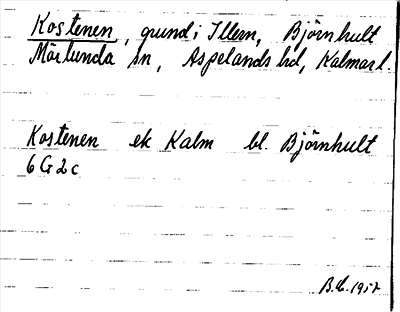 Kostenen, grund i Illern, Björnhult
Mörlunda sn, Aspelands hd, Kalmar l
Kostenen ek Kalm bl. Björnhult
6G2c
1957